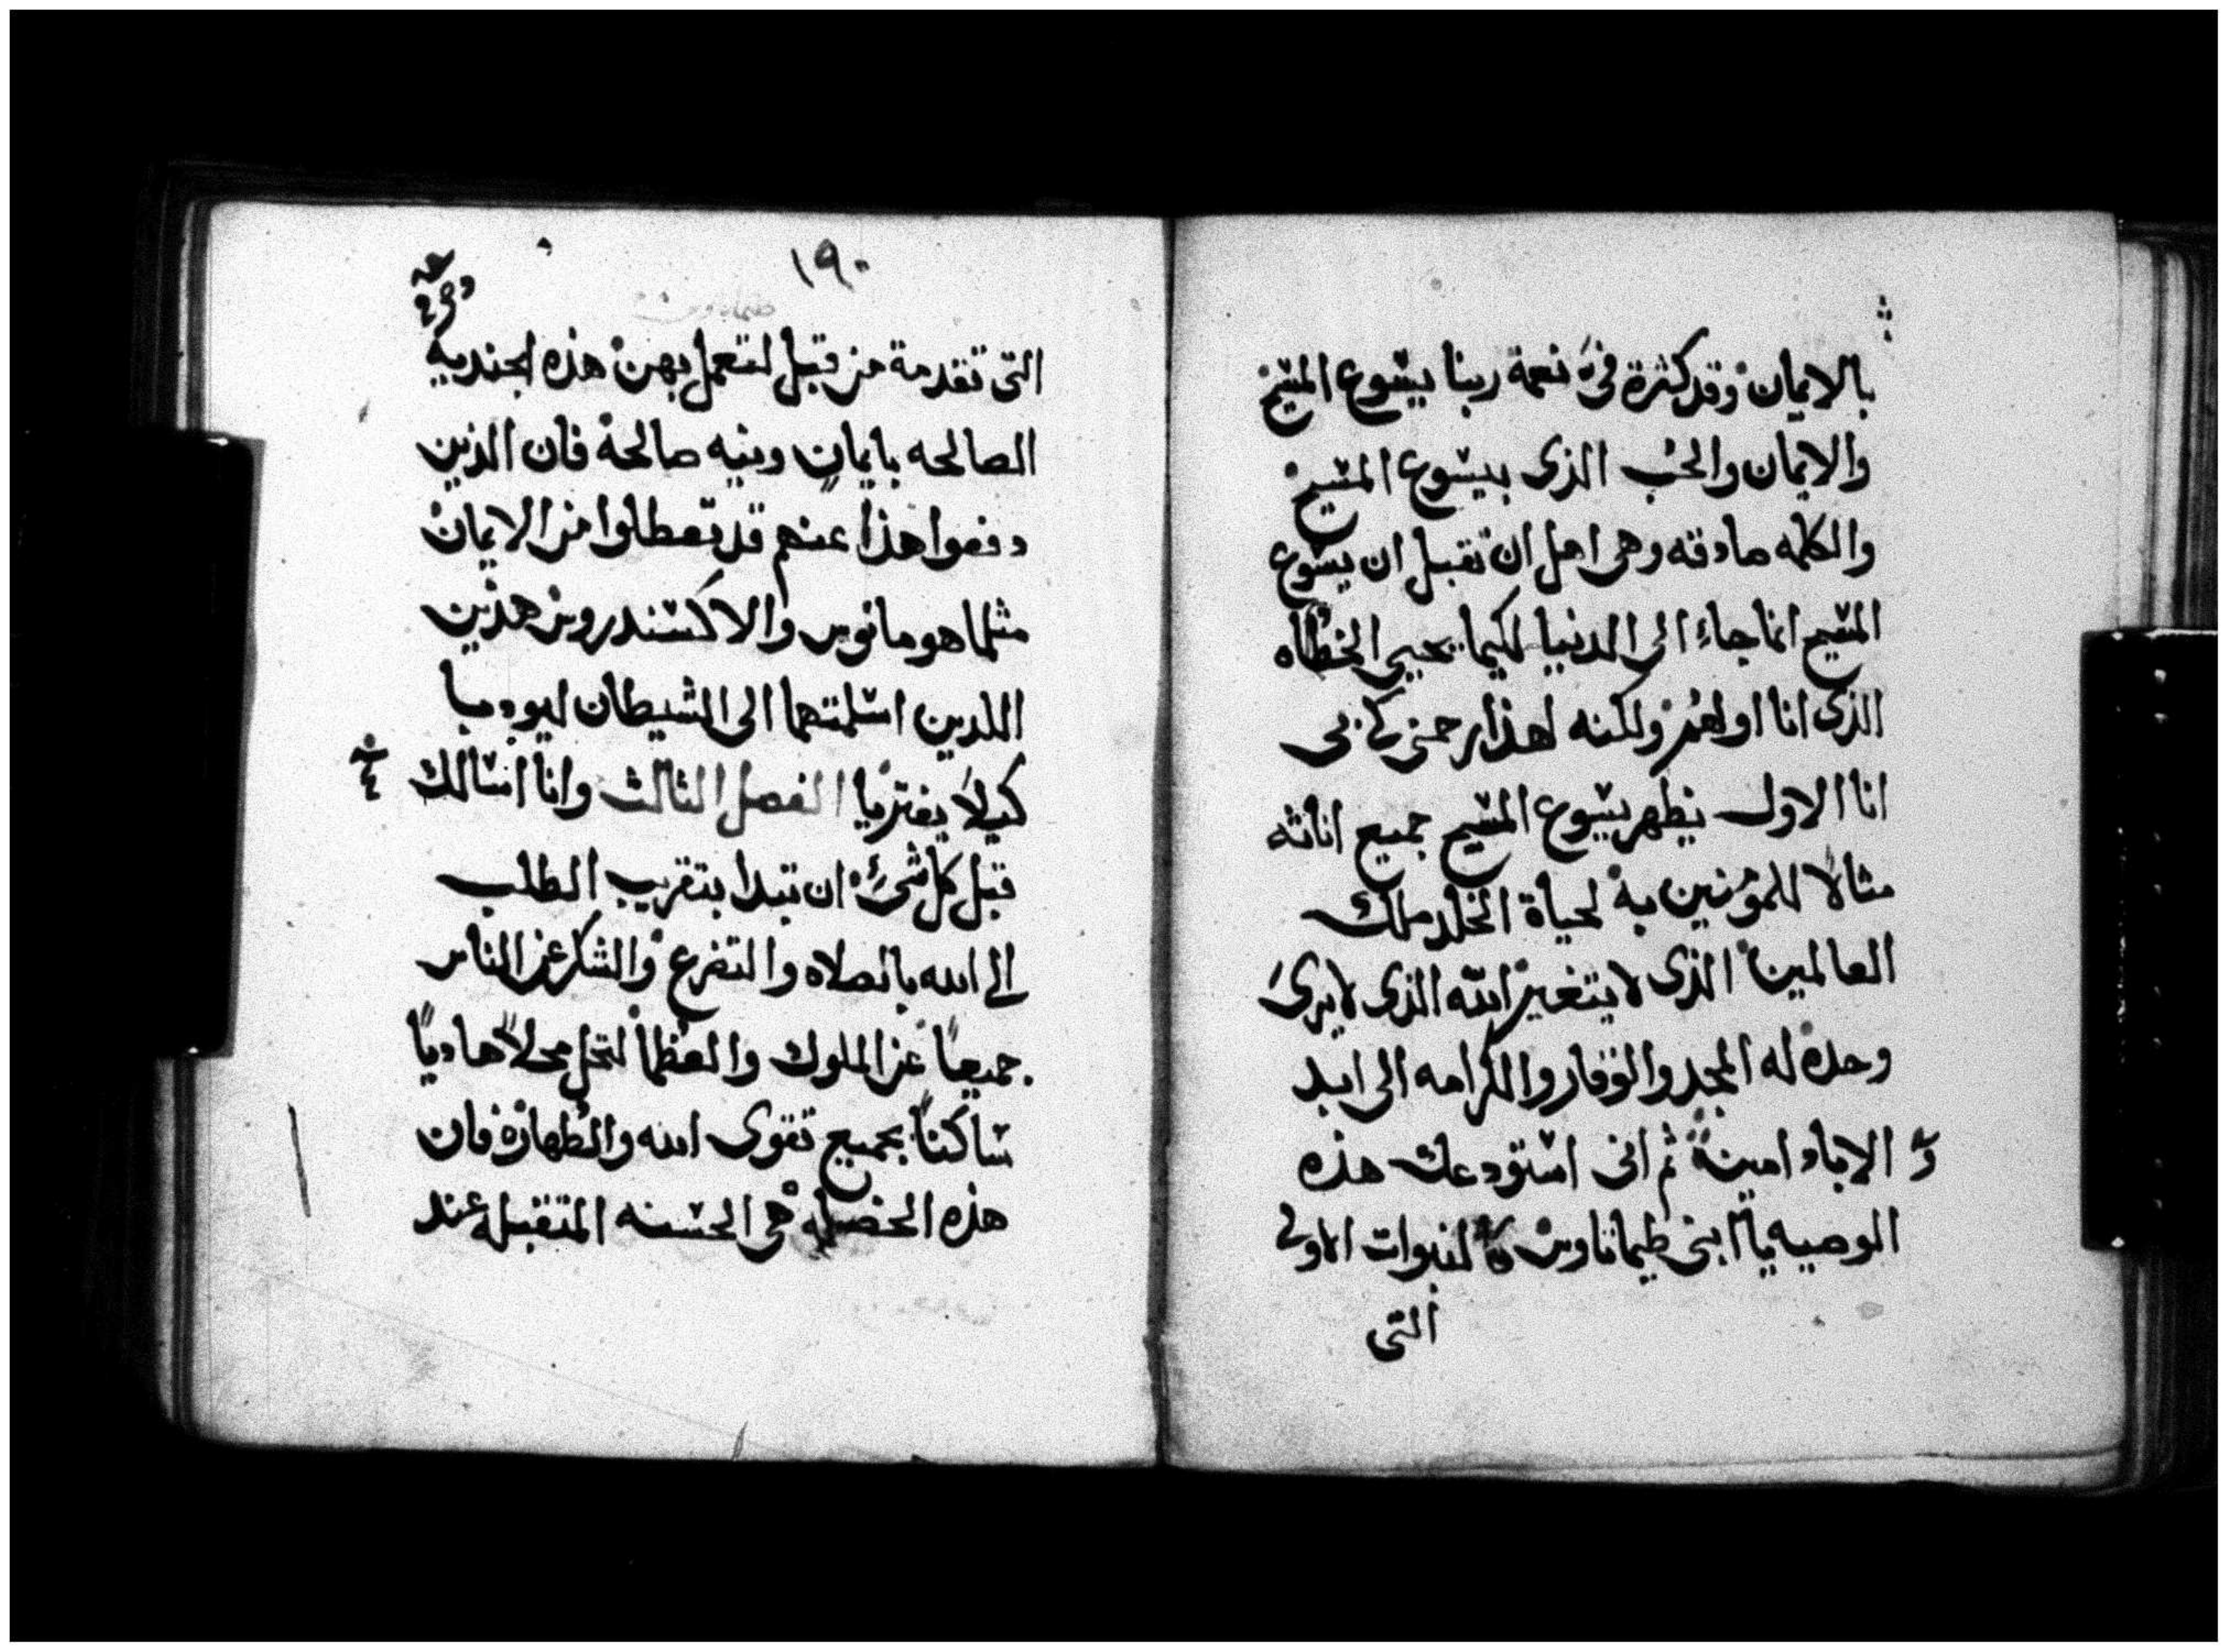 بالايمان وقد كثرة فيَّ نعمة ربنا يسوع المسيح
والايمان والحب الذى بيسوع المسيح
والكلمه صادقه وهى اهل ان تقبل ان يسوع
المسيح انما جاء الى الدنيا لكيما يحيى الخطاه
الذى انا اولهم ولكنه لهذا رحمنى كى بى
انا الاول يظهر يسوع المسيح جميع اناته
مثالا للمؤمنين به لحياة الخلد ملك
العالمين الذى لا يتغير الله الذى لا يرىَ
وحده له المجد والوقار والكرامه الى ابد
الاباد امين ثم انى استودعك هذه
الوصيه يا ابنى طيماتاوس كالنبوات الاولى
التى
١٩٠
التى تقدمة من قبل لتعمل بهن هذه الجنديه
الصالحه بايمان ونيه صالحة فان الذين
دفعوا هذا عنهم قد تعطلوا من الايمان
مثلما هومانوس والاكسندروس هذين
اللذين اسلمتهما الى الشيطان ليودبا
كيلا يفتريا الفصل الثالث وانا اسالك
قبل كل شئ ان تبدا بتقريب الطلب
الى الله بالصلاه والتضرع والشكر عن الناس
جميعاً عن الملوك والعظما لتحل محلاً هادياً
ساكناً بجميع تقوى الله والطهارة فان
هذه الخصله هى الحسنه المتقبله عند